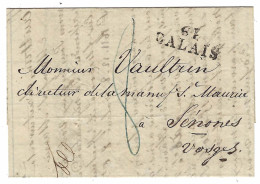 61
CALAIS
Monsieur Vaultrin
directeur de la manuf. St. Maurice
à
Sénones
Vosges